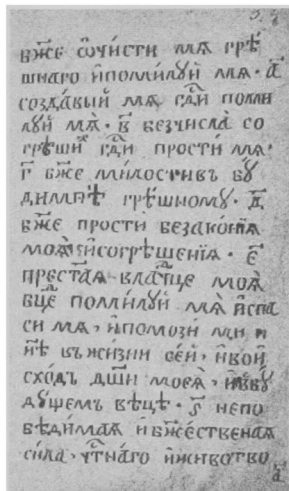 бж҃е ѡ҆чи́сти мѧ грѣ́
шнаго и҆поми́луй мѧ · а҃
созда́вый мѧ гд҃и поми
луй мѧ̀ · в҃ безчисла̀ со
грѣши́ гд҃и прости́ мѧ ·
г҃ бж҃е ми́лостивъ бꙋ
ди́мнѣ грѣ́шному · д҃
бж҃е простѝ безако́нїѧ
моѧ̀ и҆согрѣше́нїѧ · є҃
прест҃а́ѧ влⷣцⷣе моѧ̀
бц҃е поми́луй мѧ̀ и҆спа
си мѧ , и҆помози́ ми н
нѣ̃ въжи́зни се́й , и҆вои
схо́дъ дш҃и моеѧ̀ , и҆вбꙋ́
дꙋщемъ вѣ́цѣ · ѕ҃ непо
бѣди́маѧ и҆бж҃е́ственаѧ
си́ла , чтⷭ҇на́го и҆живо́тво
а҃